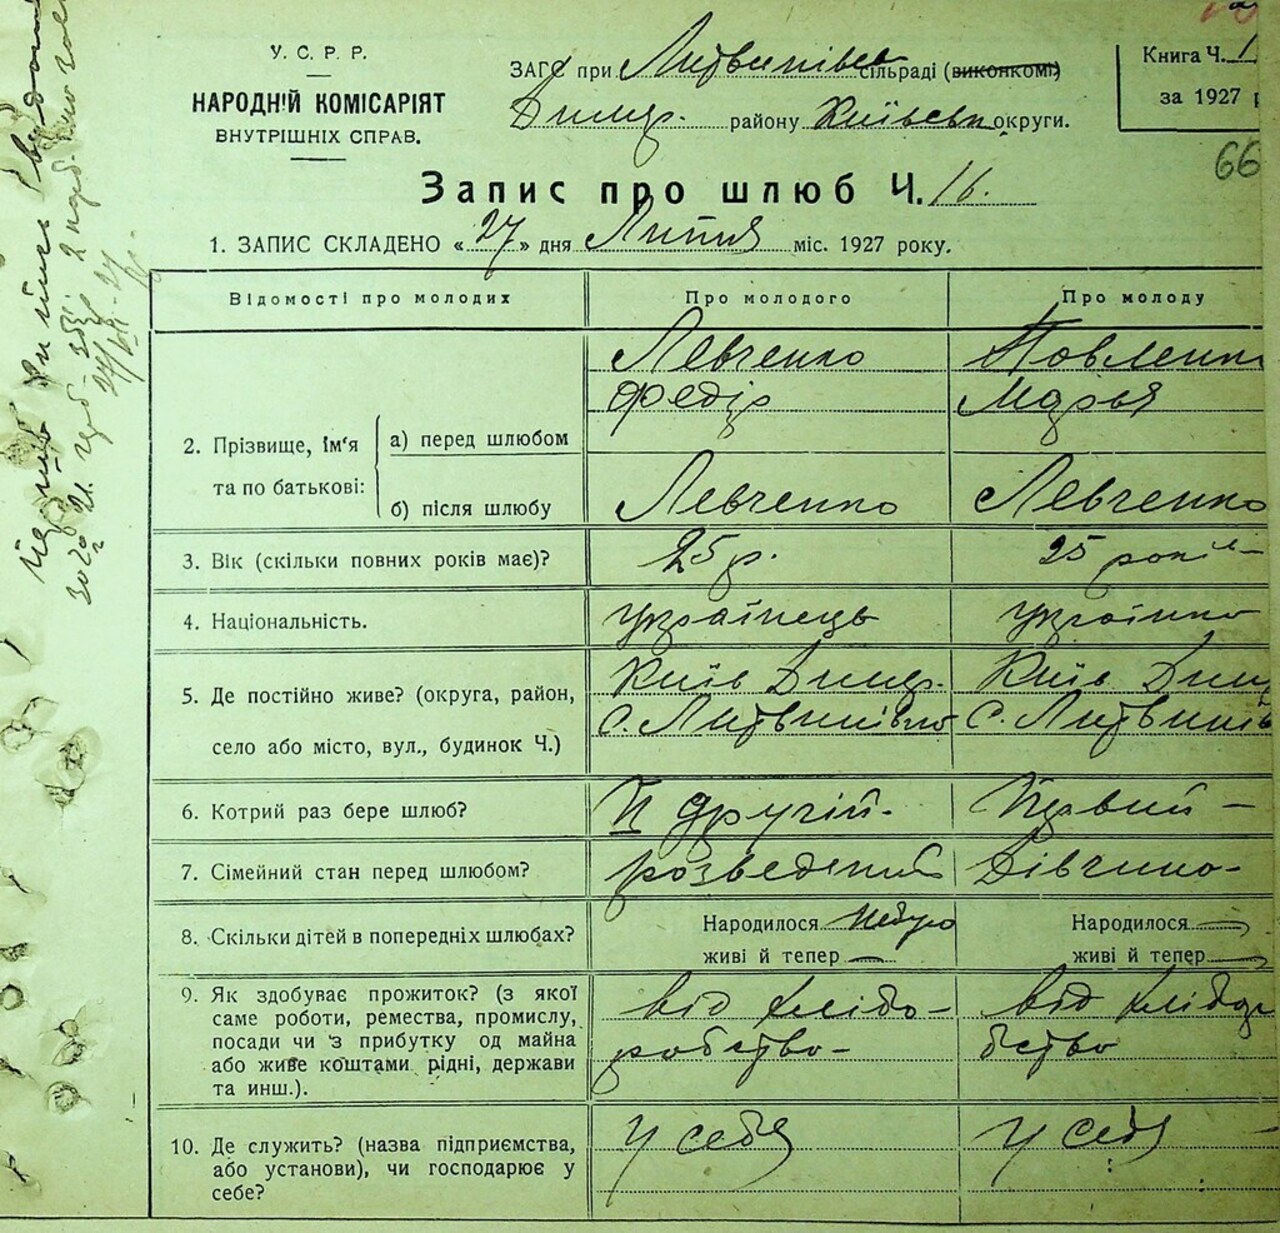 У. С. Р. Р.
НАРОДНІЙ КОМІСАРІЯТ
ВНУТРІШНІХ СПРАВ.
ЗАГС при Литвинівськ сільраді (виконкомі)
Димер. району Київськ округи.
Книга Ч. 1
за 1927 р
66
Запис про шлюб Ч. 16.
1. ЗАПИС СКЛАДЕНО «27» дня Липня міс. 1927 року.
Відомості про молодих Про молодого Про молоду
Левченко Павленк
Федір Марья
2. Прізвище, ім'я та по батькові:
а) перед шлюбом
б) після шлюбу Левченко Левченко
3. Вік (скільки повних років має)? 25 р. 25 років
4. Національність. Українець Українко
5. Де постійно живе? (округа, район, Київ Димер. Київ Дим
село або місто, вул., будинок Ч.) С. Литвинівко С. Литвинів
6. Котрий раз бере шлюб? II другій. Первий –
7. Сімейний стан перед шлюбом? розведений Дівчино-
8. Скільки дітей в попередніх шлюбах? Народилося Небуло Народилося —
живі й тепер — живі й тепер —
9. Як здобуває прожиток? (з якої від хлібо- від хлібор
саме роботи, ремества, промислу, робство- бство
посади чи з прибутку од майна
або живе коштами рідні, держави
та инш.).
10. Де служить? (назва підприємства, У себя У себя
або установи), чи господарює у
себе?